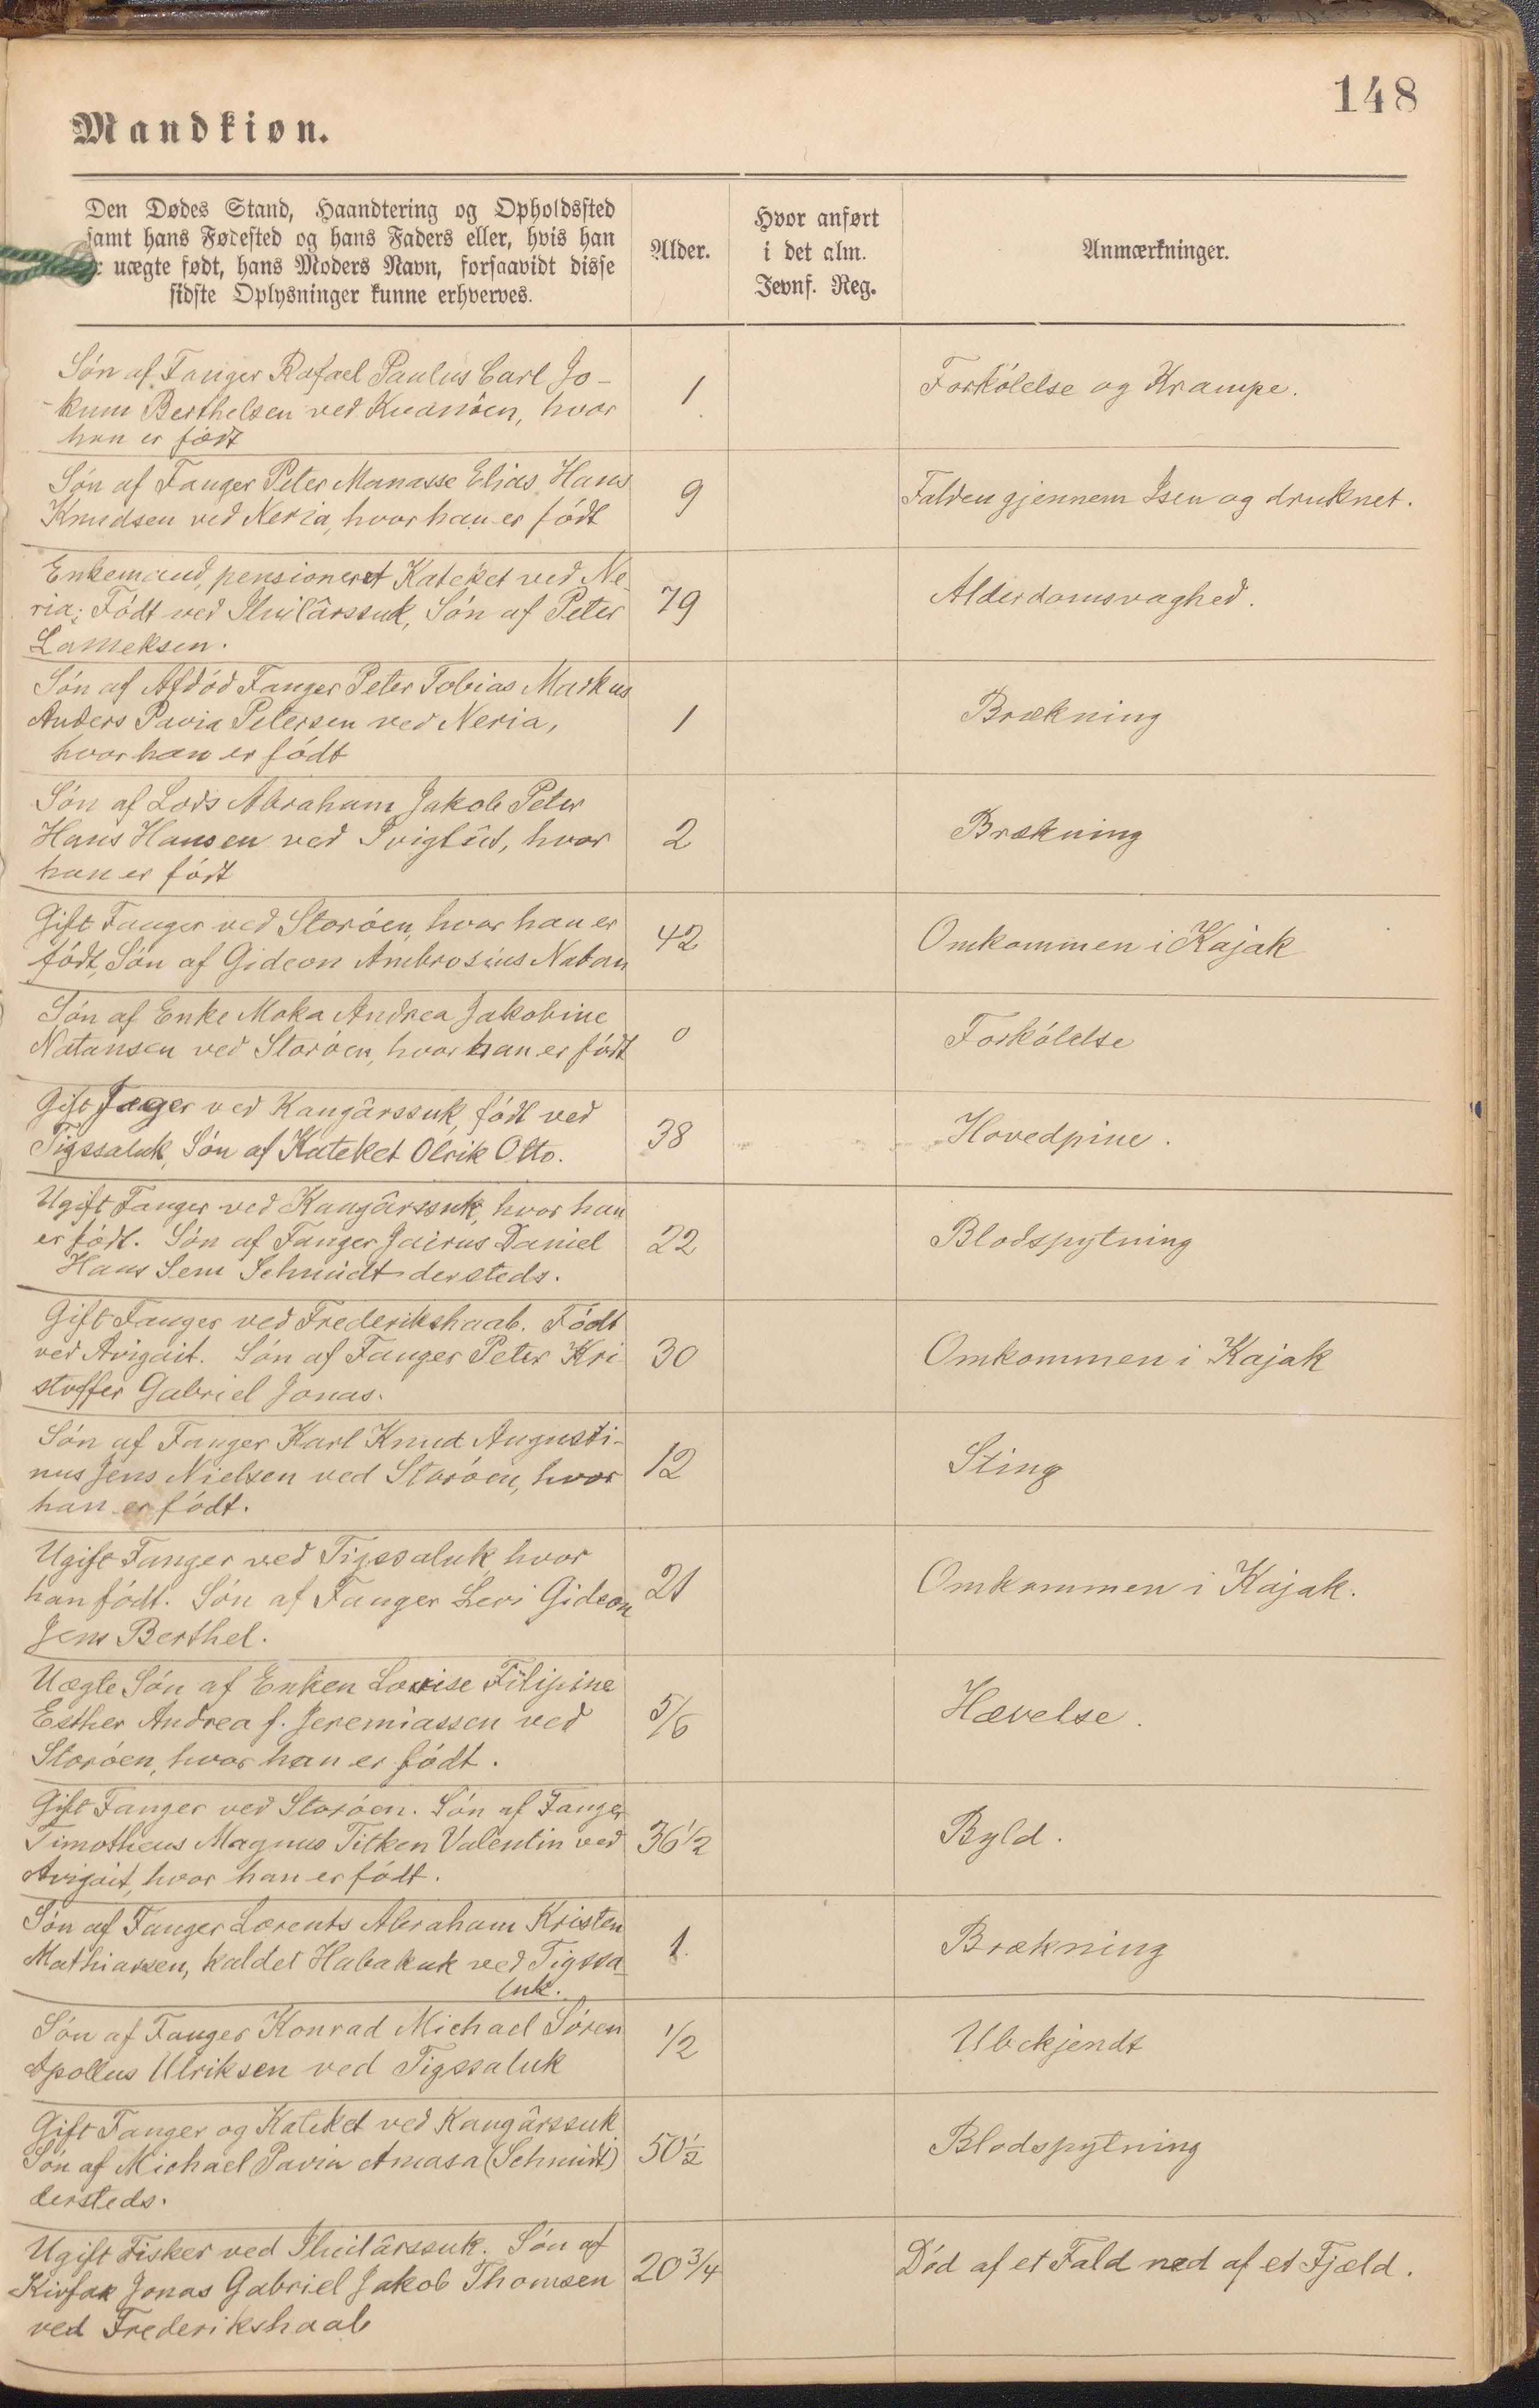 148
Mandkiøn.
Den Dødes Stand, Haandtering og Opholdssted
samt hans Fødested og hans Faders eller, hvis han
r uægte født, hans Moders Navn, forsaavidt disse
sidste Oplysninger kunne erhverves.
Alder.
Hvor anført
i det alm.
Jevnf. Reg.
Anmærkninger.
Søn af Fanger Rafael Paulus Carl Jo-
kum Berthelsen ved Kuanöen, hvor
han er født
1
Forkölelse og Krampe.
Sön af Fanger Peter Manasse Elias Hans
Knudsen ved Neria, hvor han er födt
9
Falden gjennem Isen og druknet.
Enkemand, pensioneret Kateket ved Ne
ria; Födt ved Iluilârssuk, Sön af Peter
Lameksen.
79
Alderdomsvaghed.
Sön af Afdöd Fanger Peter Tobias Markus
Anders Pavia Petersen ved Neria,
hvor han er födt
1
Brækning
Sön af Lods Abraham Jakob Peter
Hans Hansen ved Ivigtût, hvor
han er födt
2
Brækning
Gift Fanger ved Storöen, hvor han er
födt, Sön af Gideon Ambrosius Natan
42
Omkommen i Kajak
Sön af Enke Moka Andrea Jakobine
Natansen ved Storöen, hvor han er födt
0
Forkölelse
Gift Jæger ved Kangârssuk, födt ved
Tigssaluk, Sön af Kateket Olrik Otto.
38
Hovedpine.
Ugift Fanger ved Kangârssuk, hvor han
er födt. Sön af Fanger Jairus Daniel
Hans Sem Schmidt dersteds.
22
Blodspytning
Gift Fanger ved Frederikshaab. Födt
ved Avigait. Sön af Fanger Peter Kri
stoffer Gabriel Jonas.
30
Omkommen i Kajak
Sön af Fanger Karl Knud Augusti-
nus Jens Nielsen ved Storöen, hvor
han er födt.
12
Sting
Ugift Fanger ved Tigssaluk hvor
han födt. Sön af Fanger Levi Gideon
Jens Berthel.
21
Omkommen i Kajak.
Uægte Sön af Enken Lovise Filipine
Esther Andrea f. Jeremiassen ved
Storöen, hvor han er födt.
5/6
Hævelse.
Gift Fanger ved Storöen. Sön af Fanger
Timotheus Magnus Titken Valentin ved
Avigait, hvor han er födt.
36 1/2
Byld.
Sön af Fanger Lorents Abraham Kristen
Mathiassen, kaldet Habakuk ved Tigssa-
luk.
1.
Brækning
Sön af Fanger Konrad Michael Sören
Apollus Ulriksen ved Tigssaluk
1/2
Ubekjendt
Gift Fanger og Kateket ved Kangârssuk
Sön af Michael Pavia Amasa (Schmidt)
dersteds.
50 1/2
Blodspytning
Ugift Fisker ved Iluilârssuk. Sön af
Kivfak Jonas Gabriel Jakob Thomsen
ved Frederikshaab
20 3/4
Död af et Fald ned af et Fjæld.